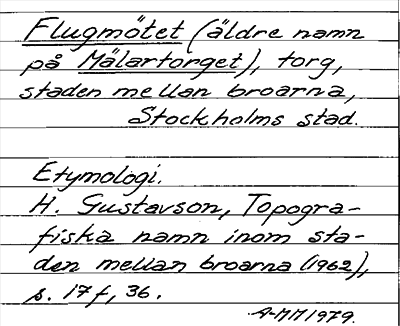 Flugmötet (äldre namn
på Mälartorget), torg,
staden mellan broarna,
Stockholms stad.
Etymologi.
H. Gustavson, Topogra-
fiska namn inom sta-
den mellan broarna (1962),
s. 17f, 36.
A-MM 1979.